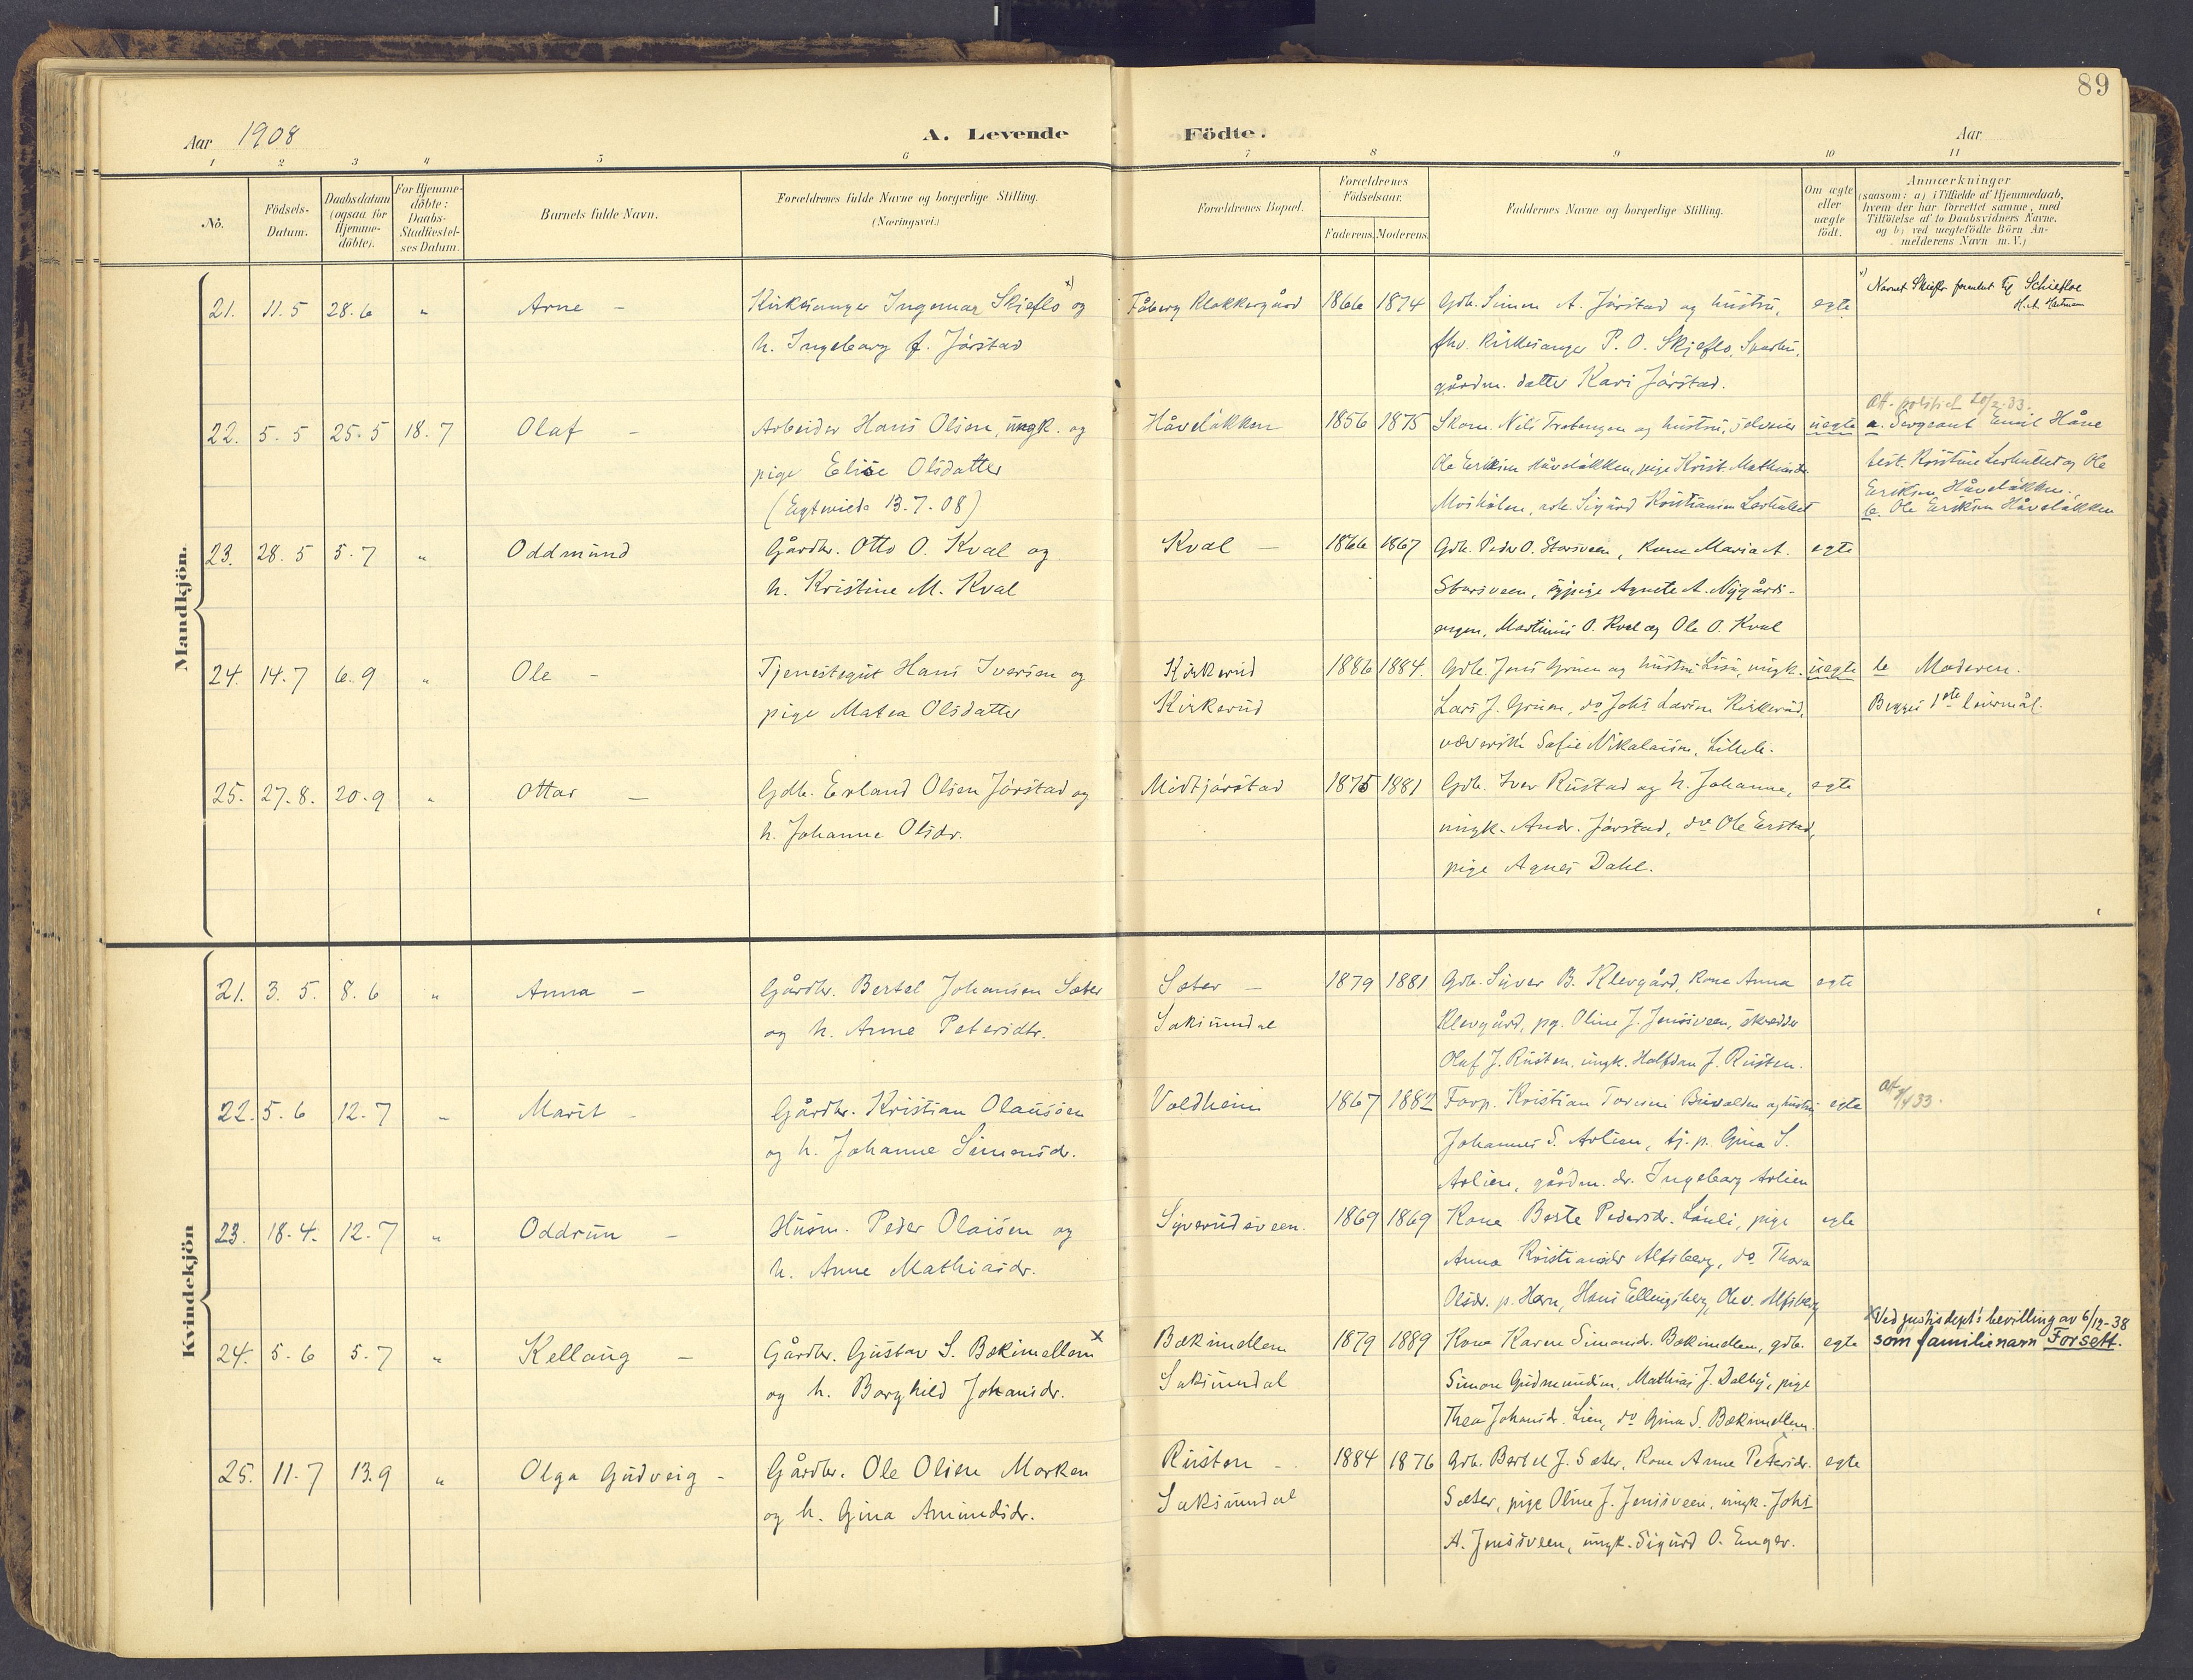 89
Aar 1908
A. Levende Födte.
Aar
1 2 3 4 5 6 7 8 9 10 11
No.
Födsels-
Datum.
Daabsdatum
(ogsaa for
Hjemme-
döbte).
For Hjemme-
döbte:
Daabs-
Stadfæstel-
ses Datum.
Barnets fulde Navn.
Forældrenes fulde Navne og borgerlige Stilling.
(Næringsvei.)
Forældrenes Bopæl.
Forældrenes
Födselsaar.
Faderens. Moderens.
Faddernes Navne og borgerlige Stilling.
Om ægte
eller
uægte
födt.
Anmærkninger
(saasom: a) i Tilfælde af Hjemmedaab,
hvem der har forrettet samme, med
Tilföielse af to Daabsvidners Navne.
og b) ved uægtefödte Börn An-
melderens Navn m. V.)
Mandkjön.
21. 11.5 28.6 " Arne - Kirkesanger Ingemar Skjeflo x) og Fåberg Klokkergård 1866 1874 Gdb. Simen A. Jörstad og hustru, egte
h. Ingeborg f. Jörstad
fhv. Kirkesanger P. O. Skjeflo,
gårdm. datter Kari Jörstad.
x) Navnet Skjeflo Schiefloe
22. 5.5 25.5 18.7 Olaf - Arbeider Hans Olsen, ungk. og Håvelökken 1856 1875 Skom. Nils og hustru, uegte
pige Elise Olsdatter
Ole Eriksen Håvelökken, pige Krist.
(Egtviede 13.7.08)
Att.
a. Sergeant Emil Håve
test. Kristine og Ole
Eriksen Håvelökken.
b. Ole Eriksen Håvelökken
23. 28.5 5.7 " Oddmund Gårdbr. Otto O. Kval og Kval - 1866 1867 Gdb. Peder O. Storsveen, Kone Maria A. egte
h. Kristine M. Kval
Storsveen, sypige Agnete A. Nygårds-
engen, Martinus O. Kval og Ole O. Kval
24. 14.7 6.9 " Ole - Tjenestegut Hans Iversen og Kirkerud 1886 1884. Gdb. Jens Gruen og hustru Lisa, ungk. uegte b Moderen.
pige Matea Olsdatter Kirkerud
Lars J. Gruen, do Johs Larsen Kirkerud,
Sofie Nikolaisen, Lilleh.
Begges 1ste leiermål.
25. 27.8. 20.9 " Ottar - Gdb. Erland Olsen Jörstad og Midtjörstad 1875 1881 Gdb. Iver Rustad og h. Johanne, egte
h. Johanne Olsdr.
ungk. Andr. Jörstad, do Ole Erstad,
pige Agnes Dahl.
Kvindekjön
21. 3.5. 8.6 " Anna - Gårdbr. Bertel Johansen Sæter Sæter - 1879 1881 Gdb. Syver B. Klevgård, Kone Anna egte
og h. Anne Petersdtr. Saksumdal
Klevgård, pg. Oline J. Jensveen, skredder
Olaf J. Rusten, ungk. Halfdan J. Rusten.
22. 5.6 12.7 " Marit - Gårdbr. Kristian Olaussen Voldheim 1867 1882 Forp. Kristian og hustru, egte
og h. Johanne Simensdr.
Johannes S. Arlien, tj. p. Gina S.
Arlien, gårdm. dr. Ingeborg Arlien
23. 18.4. 12.7 " Oddrun - Husm. Peder Olaisen og Syverudsveen. 1869 1869 Kone Berte Pedersdr. pige egte
h. Anne Mathiasdr.
Anna Kristiansdr Alfsberg, do. Thora
Olsdr. p. Horn, Hans Ellingsberg, Ole Alfsberg
24. 5.6 5.7 " Kellaug - Gårdbr. Gustav S. Bækimellem x Bækimellem 1879 1889 Kone Karen Simensdr. Bækimellem, gdb. egte
og h. Borghild Johansdr. Saksumdal
Simon Gudmundsen, Mathias J. Dalby, pige
Thea Johansdr. Lien, do Gina S. Bækimellem
x Ved justisdept's bevilling av 6/12-38
som familienavn Forsett.
25. 11.7 13.9 " Olga Gudveig - Gårdbr. Ole Olsen Morken Rusten - 1884 1876 Gdb. Bertel J. Sæter, Kone Anne Petersdr. egte
og h. Gina Amundsdr. Saksumdal
Sæter, pige Oline J. Jensveen, ungk. Johs
A. Jensveen, ungk. Sigurd O. Enger.